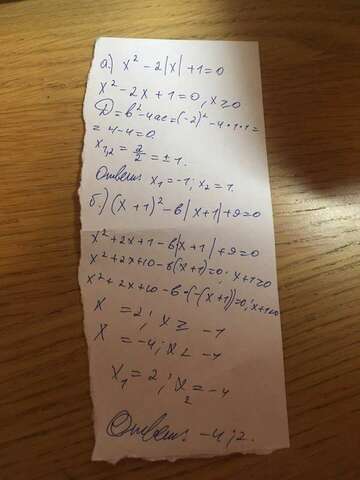 а.) x² - 2|x| + 1 = 0
x² - 2x + 1 = 0, x ≥ 0
D = b² - 4ac = (-2)² - 4·1·1 =
= 4 - 4 = 0.
x₁,₂ = 2/2 = ± 1.
Ответ x₁ = -1; x₂ = 1.
б.) (x + 1)² - 6|x + 1| + 9 = 0
x² + 2x + 1 - 6|x + 1| + 9 = 0
x² + 2x + 10 - 6(x + 1) = 0; x + 1 ≥ 0
x² + 2x + 10 - 6·(-(x + 1)) = 0; x + 1 < 0
x = 2; x ≥ -1
x = -4; x < -1
x₁ = 2; x₂ = -4
Ответ -4; 2.